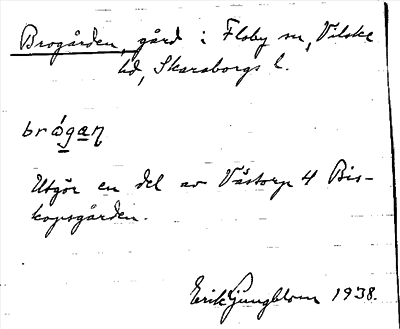 Brogården, gård i Floby sn, Vilske
hd, Skaraborgs l.
brógaŋ
Utgör en del av Västorp 4 Bis-
kopsgården.
Erik Ljungblom 1938.